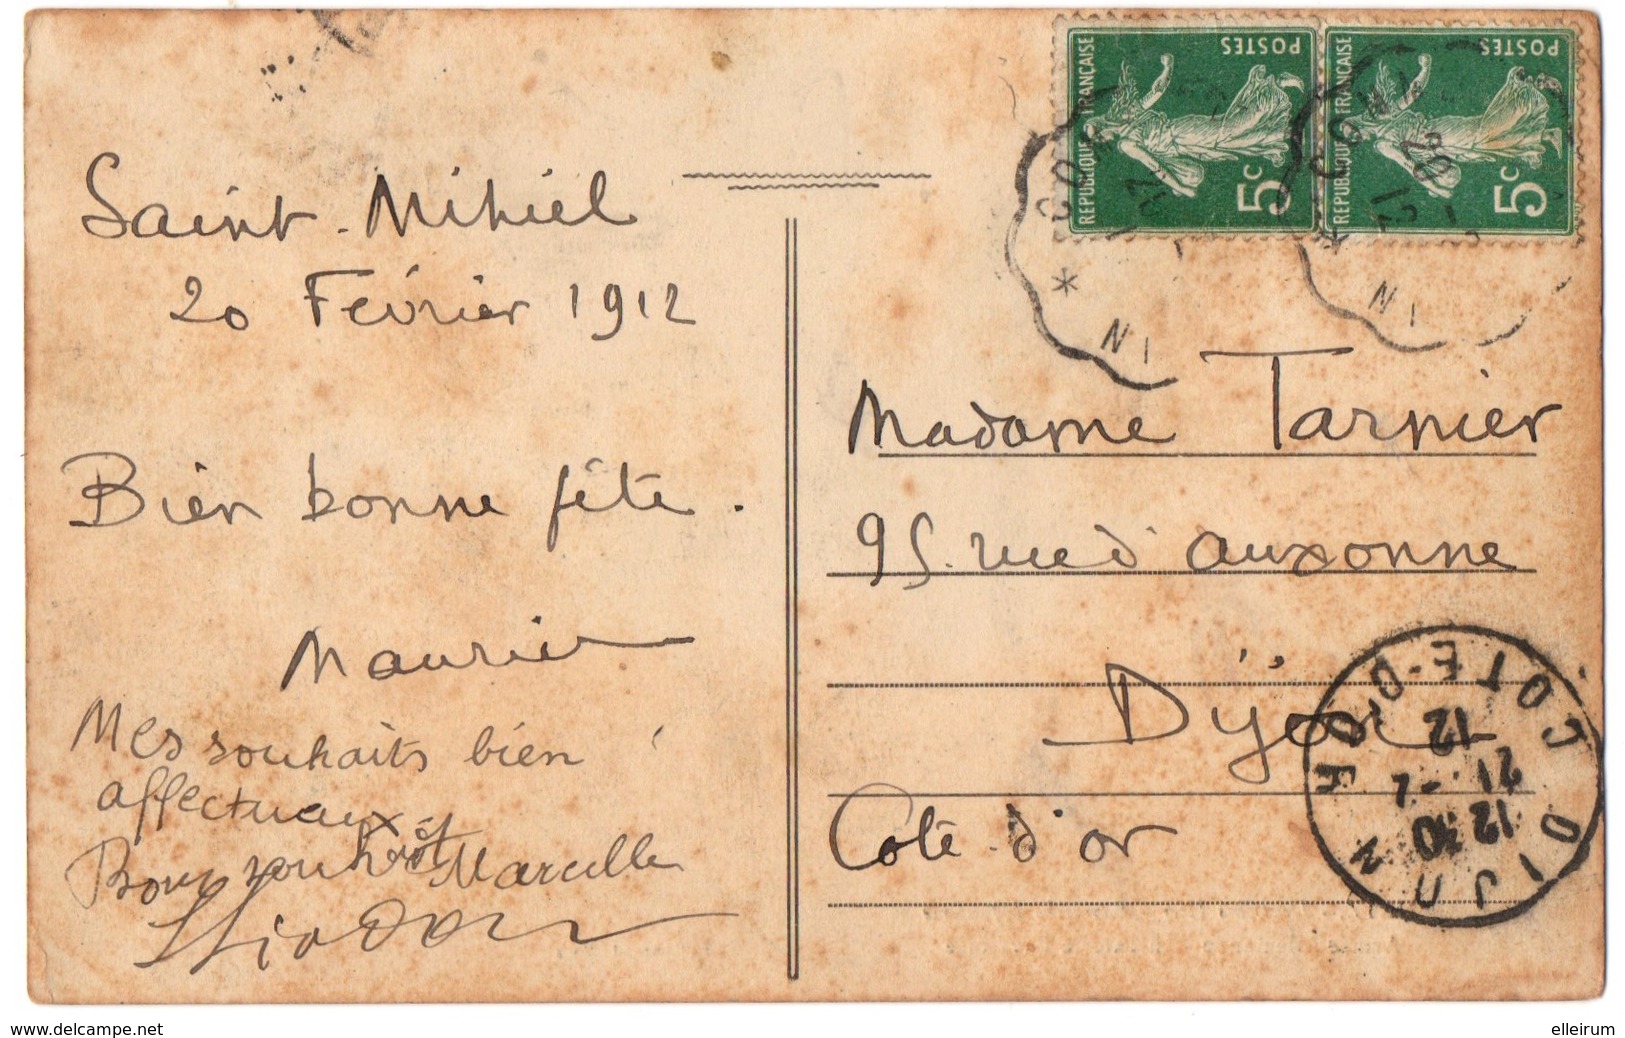 Saint-Mihiel
20 Février 1912
Bien bonne fête.
Maurice
Mes souhaits bien
affectueux
Bons souhaits Marcelle
REPUBLIQUE FRANCAISE
POSTES
5c
REPUBLIQUE FRANCAISE
POSTES
5c
Madame Tarnier
95. rue d'auxonne
Dijon
Côte d'or
DIJON
COTE-D'OR
12 30
21 - 2
12
www.delcampe.net
elleirum